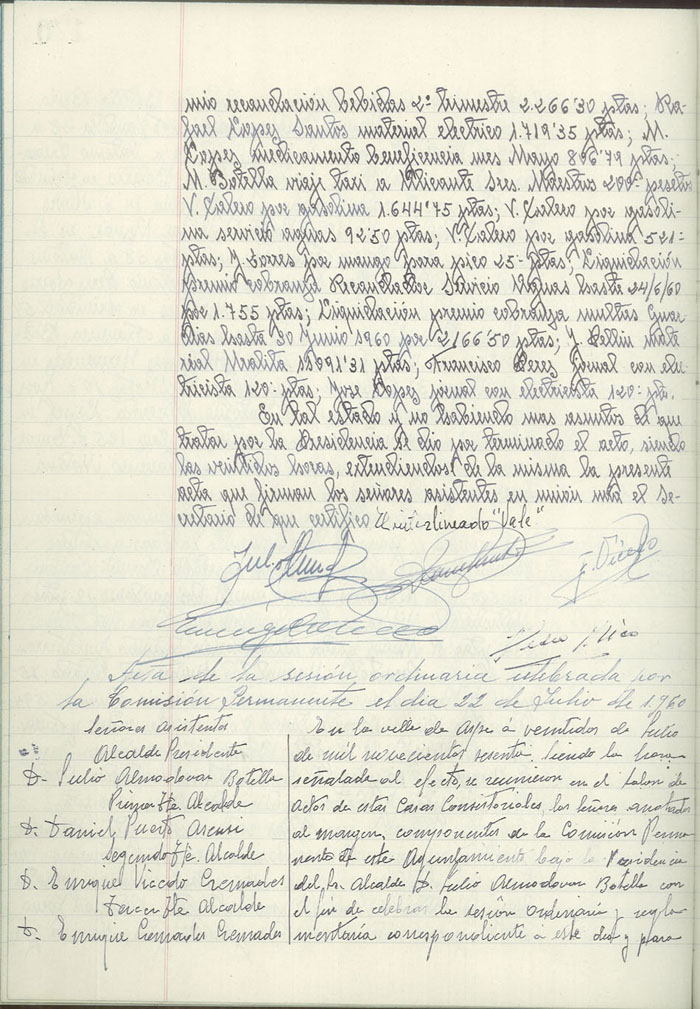 mio recaudación bebidas 2º trimestre 2.266'30 ptas; Ra-
fael Lopez Santos material electrico 1.719'35 ptas; M.
Lopez medicamento beneficencia mes Mayo 806'79 ptas;
M. Botella viaje taxi a Alicante Sres. Maestros 200- pesetas
V. Calero por gasolina 1.644'75 ptas; V. Calero por gasoli-
na servicio aguas 92'50 ptas; V. Calero por gasolina 521-
ptas; J. Torres por mango para pico 25- ptas; Liquidación
premio cobranza Recaudador Servicio Aguas hasta 24/6/60
por 1.755 ptas; Liquidación premio cobranza multas Guar
dias hasta 30 Junio 1960 por 2166'50 ptas; J. mate
rial Uralita ptas; Francisco Perez jornal con elec-
tricista 120- ptas; Jose Lopez jornal con electricista 120- pts.
En tal estado y no habiendo mas asuntos de que
tratar por la Presidencia se dio por terminado el acto, siendo
las veintidos horas, extendiendose de la misma la presente
acta que firman los señores asistentes en union mia el Se-
cretario de que certifico Interlineado "Vale"
Acta de la sesión ordinaria celebrada por
la Comisión Permanente el dia 22 de Julio de 1.960
Señores asistentes
Alcalde Presidente
D. Julio Almodovar Botella
Primer Tte Alcalde
D. Daniel Puerto Asensi
Segundo Tte. Alcalde
D. Enrique Vicedo Cremades
Tercer Tte Alcalde
D. Enrique Cremades Cremades
En la villa de Aspe á veintidos de Julio
de mil novecientos sesenta. Siendo la hora
señalada al efecto, se reunieron en el salon de
actos de estas Casas Consistoriales, los señores anotados
al margen, componentes de la Comisión Perma-
nente de este Ayuntamiento, bajo la Presidencia
del Sr. Alcalde D. Julio Almodovar Botella con
el fin de celebrar la sesión ordinaria y regla-
mentaria correspondiente á este dia y para